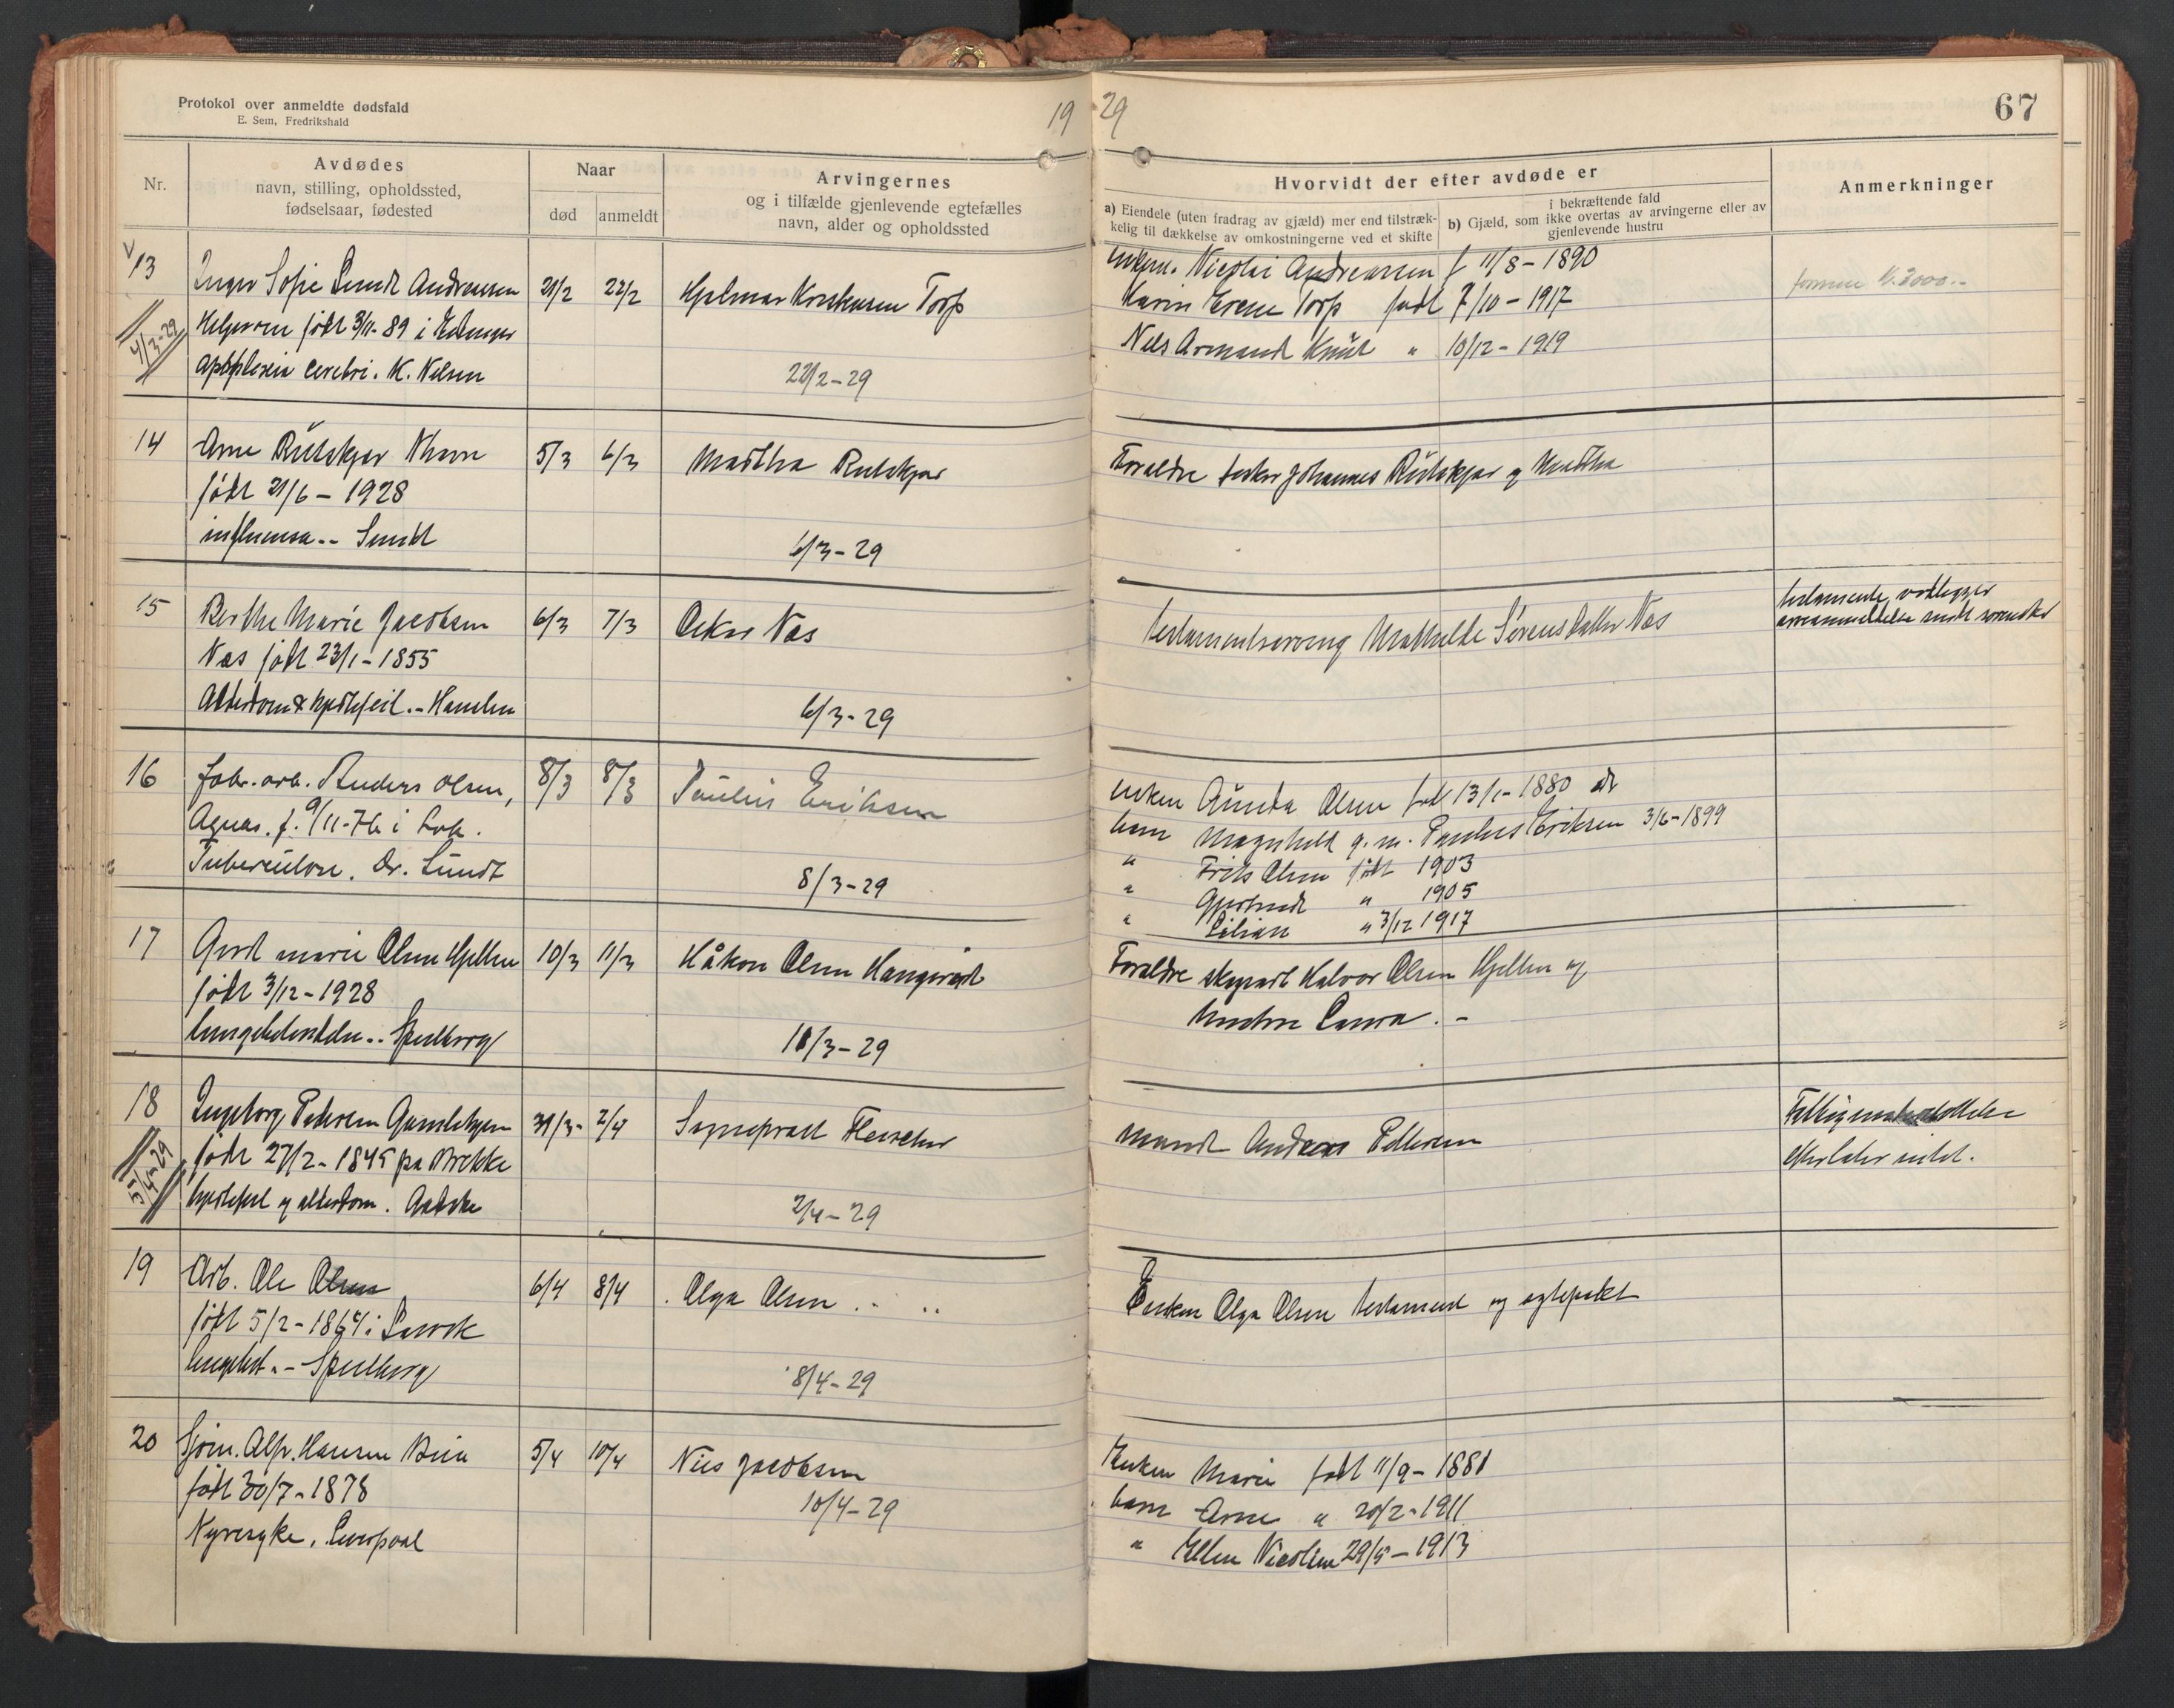 Protokol over anmeldte dødsfald
E. Sem, Fredrikshald
19 29
67
Nr.
Avdødes
navn, stilling, opholdssted,
fødselsaar, fødested
Naar
død
anmeldt
Arvingernes
og i tilfælde gjenlevende egtefælles
navn, alder og opholdssted
Hvorvidt der efter avdøde er
a) Eiendele (uten fradrag av gjæld) mer end tilstræk-
kelig til dækkelse av omkostningerne ved et skifte
i bekræftende fald
b) Gjæld, som ikke overtas av arvingerne eller av
gjenlevende hustru
Anmerkninger
13
4/3-29
Inger Sofie Lundt Andreassen
født 3/11-89 i
apoplexia cerebri. K. Nilsen
21/2
22/2
Hjalmar Torp
22/2-29
Nicolai Andreassen f 11/8-1890
Karin Torp født 7/10-1917
Nils Armand Knut " 10/12-1919
3000.-
14
Arne Rutskjær
født 21/6-1928
influensa.- Lundt
5/3
6/3
Martha Rutskjær
6/3-29
Forældre Johannes Rutskjær og Martha
15
Berthe Marie Jacobsen
Næs født 23/1-1855
Alderdom & hjertefeil.- Hanslien
6/3
7/3
Oskar Næs
6/3-29
testamentsarving Mathilde Sørensdatter Næs
testamente vedlegges
16
fabr. arb. Anders Olsen,
f. 9/11-76 i
Tuberculose. Dr. Lundt
8/3
8/3
Paulus Eriksen
8/3-29
enken Olsen født 13/1-1880
barn Magnhild g. m. Paulus Eriksen 3/6-1899
" Frits Olsen født 1903
" Gjertrud " 1905
" Lilian " 3/12 1917
17
Gerd marie Olsen Hjellen
født 3/12-1928
lungebetændelse.-
10/3
11/3
Håkon Olsen
11/3-29
Forældre Halvor Olsen Hjellen og
hustru Laura.-
18
5/4-29
Ingeborg Pedersen
født 27/2-1845 på Brekke
hjertefeil og alderdom.
31/3-
2/4
Sogneprest Fleischer
2/4-29
mand Andreas Pettersen
efterlater intet.
19
Arb. Ole Olsen
født 5/2-1864 i
6/4
8/4
Olga Olsen
8/4-29
Enken Olga Olsen testament og egtepakt
20
Sjøm. Alfr. Hansen
født 30/7-1878
Nyresyke. Liverpool
5/4
10/4
Nils Jacobsen
10/4-29
Enken Marie født 11/9-1881
barn Arne " 20/2-1911
" Ellen Nicoline 29/5-1913